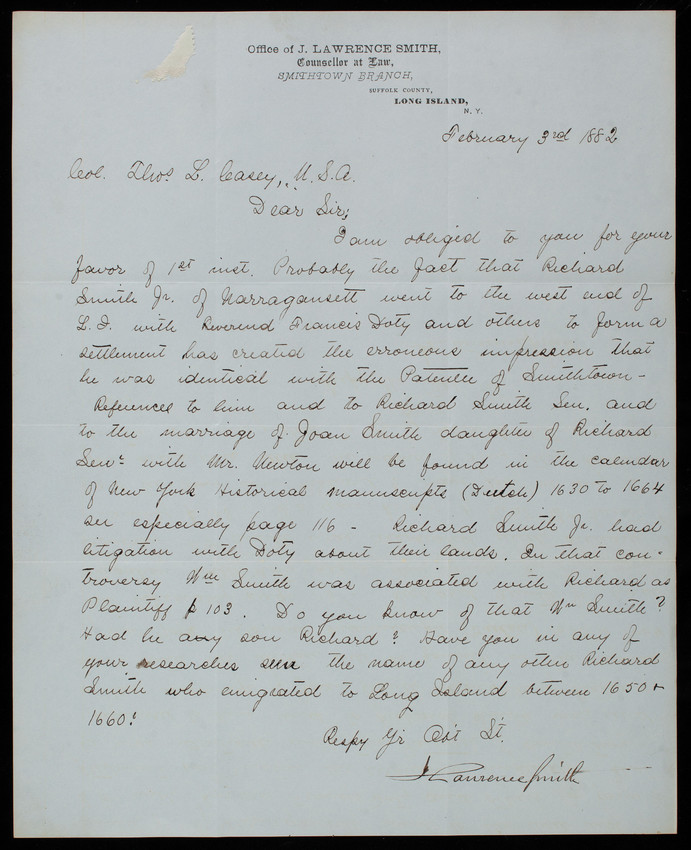 Office of J. LAWRENCE SMITH,
Counsellor at Law,
SMITHTOWN BRANCH,
SUFFOLK COUNTY,
LONG ISLAND,
N. Y.
February 3rd 1882
Col. Thos. L. Casey, U. S. A.
Dear Sir;
I am obliged to you for your
favor of 1st inst. Probably the fact that Richard
Smith Jr. of Narragansett went to the west end of
L. I. with Reverend Francis Doty and others to form a
settlement has created the erroneous impression that
he was identical with the Patentee of Smithtown -
References to him and to Richard Smith Sen. and
to the marriage of Joan Smith daughter of Richard
Senr. with Mr. Newton will be found in the calendar
of New York Historical manuscripts (Dutch) 1630 to 1664
see especially page 116 - Richard Smith Jr. had
litigation with Doty about their lands. In that con-
troversy Wm Smith was associated with Richard as
Plaintiff p 103. Do you know of that Wm Smith?
Had he any son Richard? Have you in any of
your researches seen the name of any other Richard
Smith who emigrated to Long Island between 1650 &
1660?
Respy Yr Obt St.
J Lawrence Smith